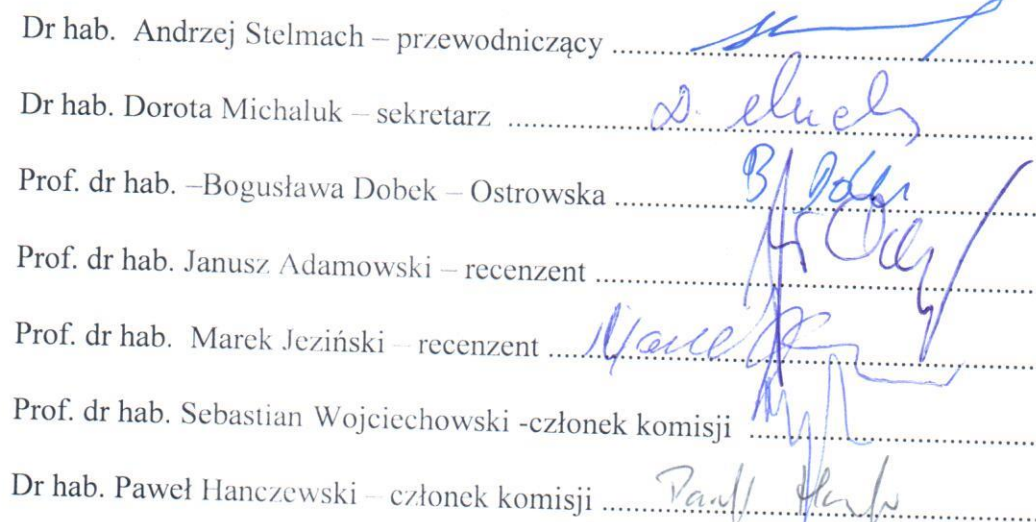 Dr hab. Andrzej Stelmach – przewodniczący ........................................
Dr hab. Dorota Michaluk – sekretarz ........................................
Prof. dr hab. –Bogusława Dobek – Ostrowska ........................................
Prof. dr hab. Janusz Adamowski – recenzent ........................................
Prof. dr hab. Marek Jeziński – recenzent ........................................
Prof. dr hab. Sebastian Wojciechowski -członek komisji ........................................
Dr hab. Paweł Hanczewski – członek komisji ........................................